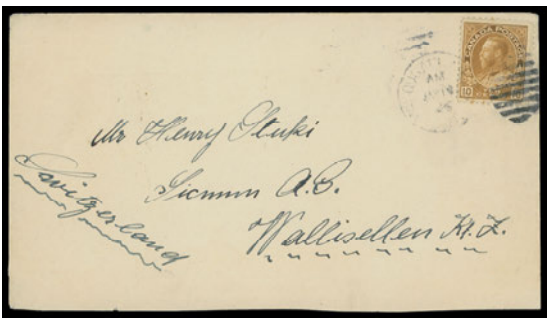 CANADA POSTAGE
10
AM
Mr Henry Stuki
Sicmum A.G.
Wallisellen Kt. Z.
Switzerland